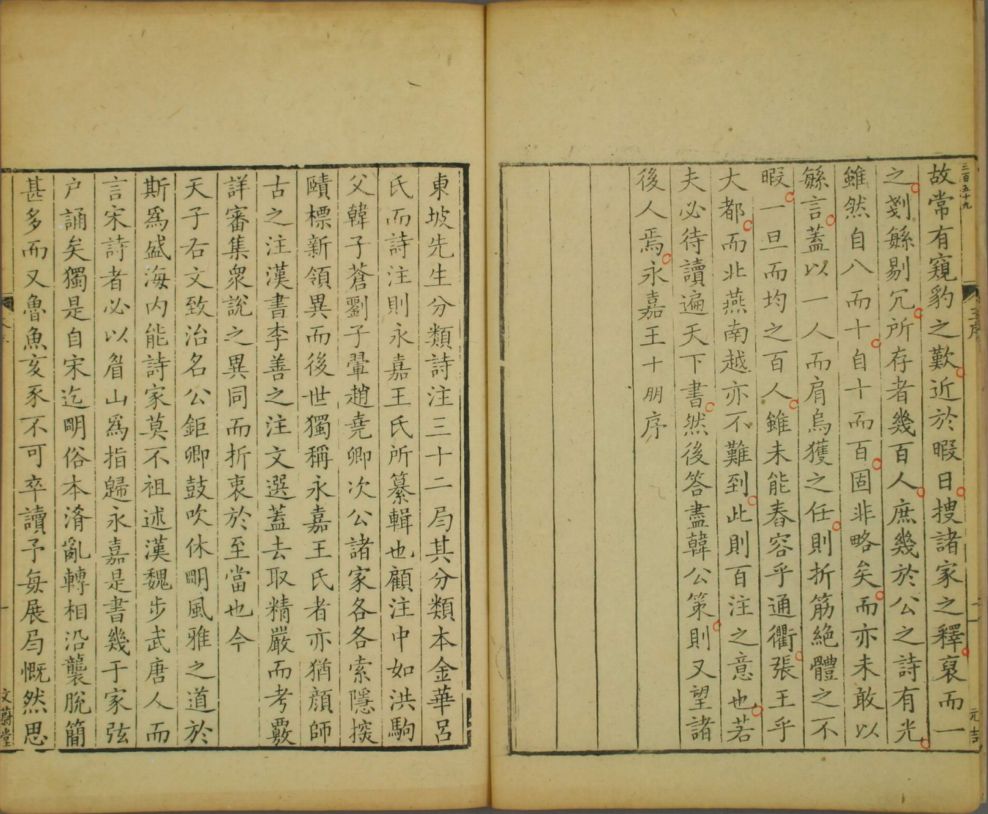 故常有窺豹之歎近於暇日搜諸家之釋裒而一
之剗繇剔冗所存者幾百人庶幾於公之詩有光
雖然自八而十自十而百固非略矣而亦未敢以
繇言蓋以一人而肩烏獲之任則折筋絕體之不
暇一旦而均之百人雖未能舂容乎通衢張王乎
大都而北燕南越亦不難到此則百注之意也若
夫必待讀遍天下書然後答盡韓公策則又望諸
後人焉永嘉王十朋序
三百五十九
王序
元吉
東坡先生分類詩注三十二卷其分類本金華呂
氏而詩注則永嘉王氏所纂輯也顧注中如洪駒
父韓子蒼劉子翬趙堯卿次公諸家各各索隱探
賾標新領異而後世獨稱永嘉王氏者亦猶顏師
古之注漢書李善之注文選蓋去取精嚴而考覈
詳審集衆說之異同而折衷於至當也今
天子右文致治名公鉅卿鼓吹休明風雅之道於
斯爲盛海内能詩家莫不祖述漢魏步武唐人而
言宋詩者必以眉山爲指歸永嘉是書幾于家弦
户誦矣獨是自宋迄明俗本淆亂轉相沿襲脫簡
甚多而又魯魚亥豕不可卒讀予每展卷慨然思
文蔚堂